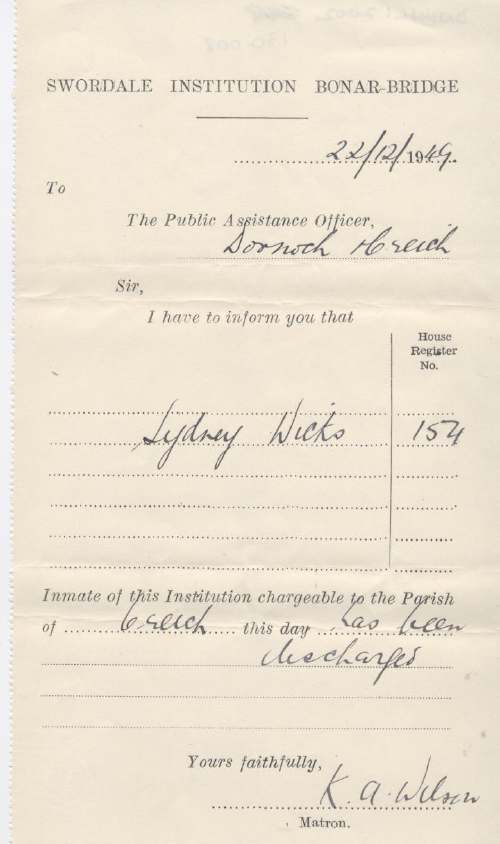 SWORDALE INSTITUTION BONAR-BRIDGE
22/12/1949.
To
The Public Assistance Officer,
Dornoch & Creich
Sir,
I have to inform you that
House
Register
No.
Sydney Wicks 154
Inmate of this Institution chargeable to the Parish
of Creich this day has been
discharged
Yours faithfully,
K. A. Wilson
Matron.